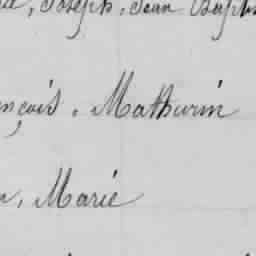 , Joseph, Jean Bapt
nçois, Mathurin
, Marie